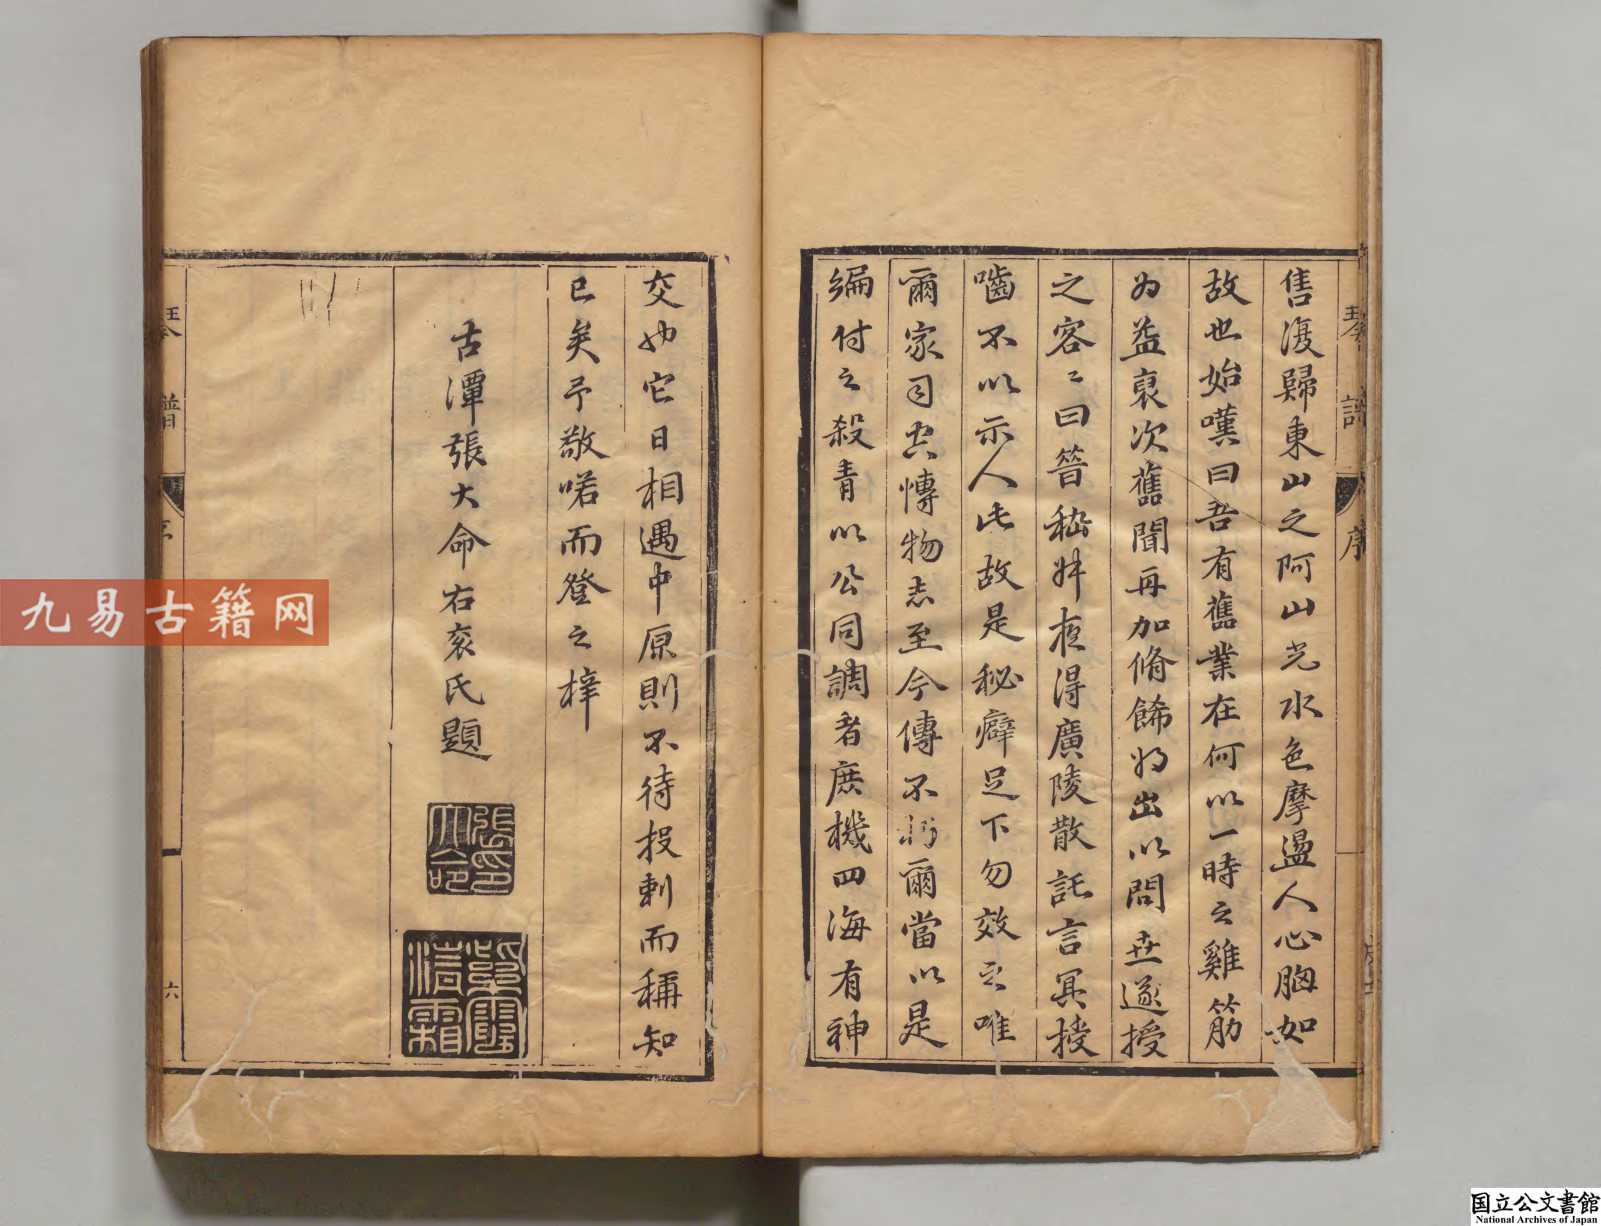 售復歸東山之阿山光水色摩盪人心胸如
故也始嘆曰吾有舊業在何以一時之雞筋
為益裒次舊聞再加脩餙將出以問世遂授
之客〻曰晉嵇叔夜得廣陵散託言冥授
嚙不以示人此故是秘癖足下勿效之唯
爾家司空慱物志至今傳不朽爾當以是
編付之殺青以公同調者庶機四海有神
交也它日相遇中原則不待投刺而稱知
已矣予敬喏而登之梓
古潭張大命右袞氏題
張大命印
紫雲清霜
琴譜 序
琴譜 序 六
九易古籍网
国立公文書館
National Archives of Japan